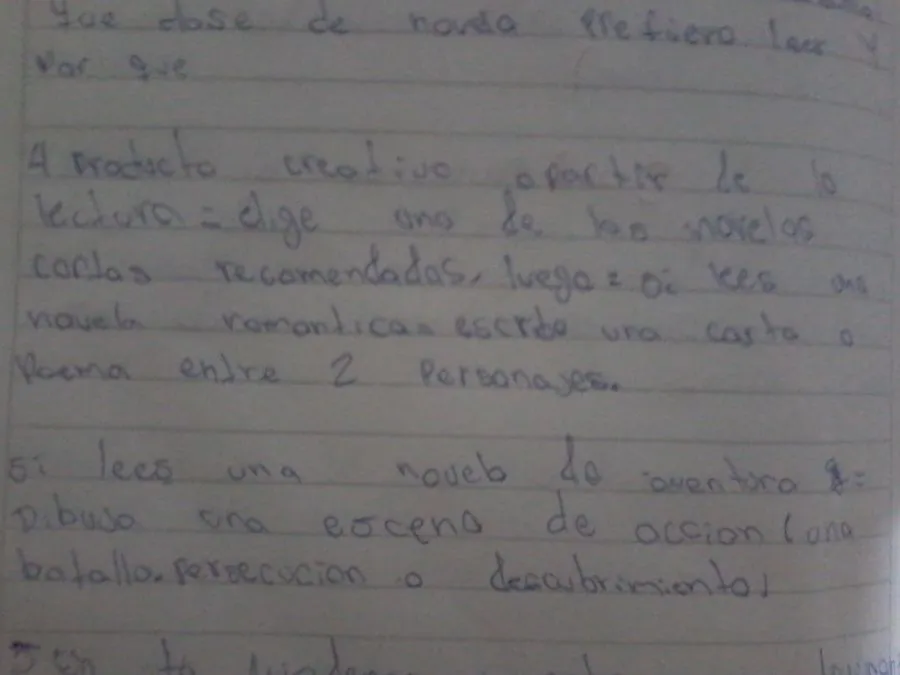 que clase de novela prefiero leer y
por que
4 producto creativo apartir de lo
lectura = elige una de las novelas
cortas recomendadas, luego = si lees una
novela romantica = escribe una carta o
poema entre 2 personajes.
si lees una novela de aventura =
Dibuja una escena de accion (una
batalla, persecucion o descubrimiento)
5 en tu